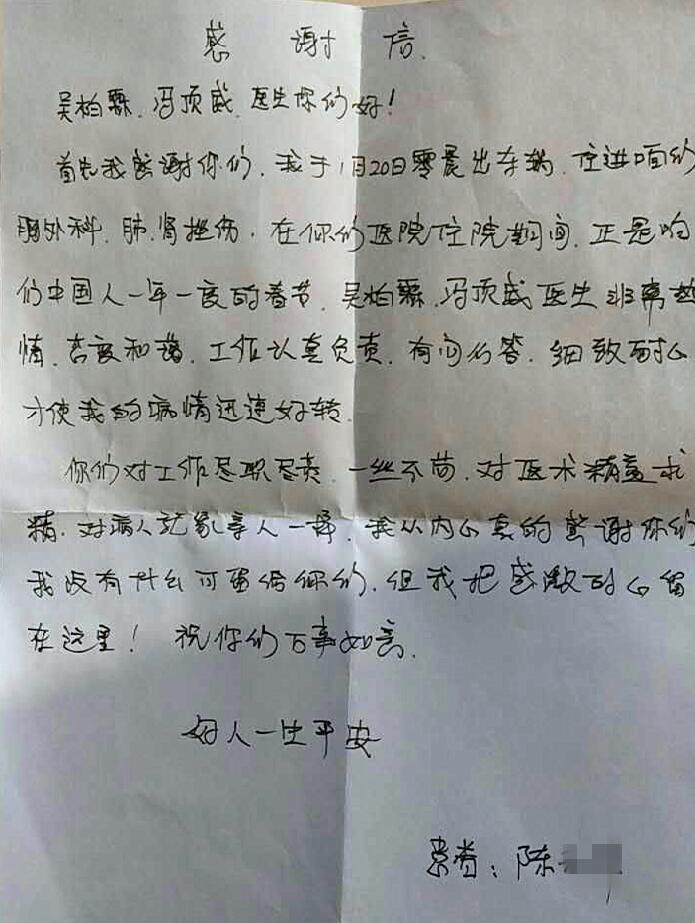 感谢信.
吴柏霖.冯顶威.医生你们好!
首先我感谢你们.我于1月20日零晨出车祸.住进咱们
胸外科.肺.肾挫伤.在你们医院住院期间.正是咱
们中国人一年一度的春节.吴柏霖.冯顶威医生非常热
情.态度和蔼.工作认真负责.有问必答.细致耐心
才使我的病情迅速好转.
你们对工作尽职尽责.一丝不苟.对医术精益求
精.对病人就象亲人一样.我从内心真的感谢你们
我没有什么可留给你们.但我把感激的心留
在这里!祝你们万事如意.
好人一生平安
患者:陈